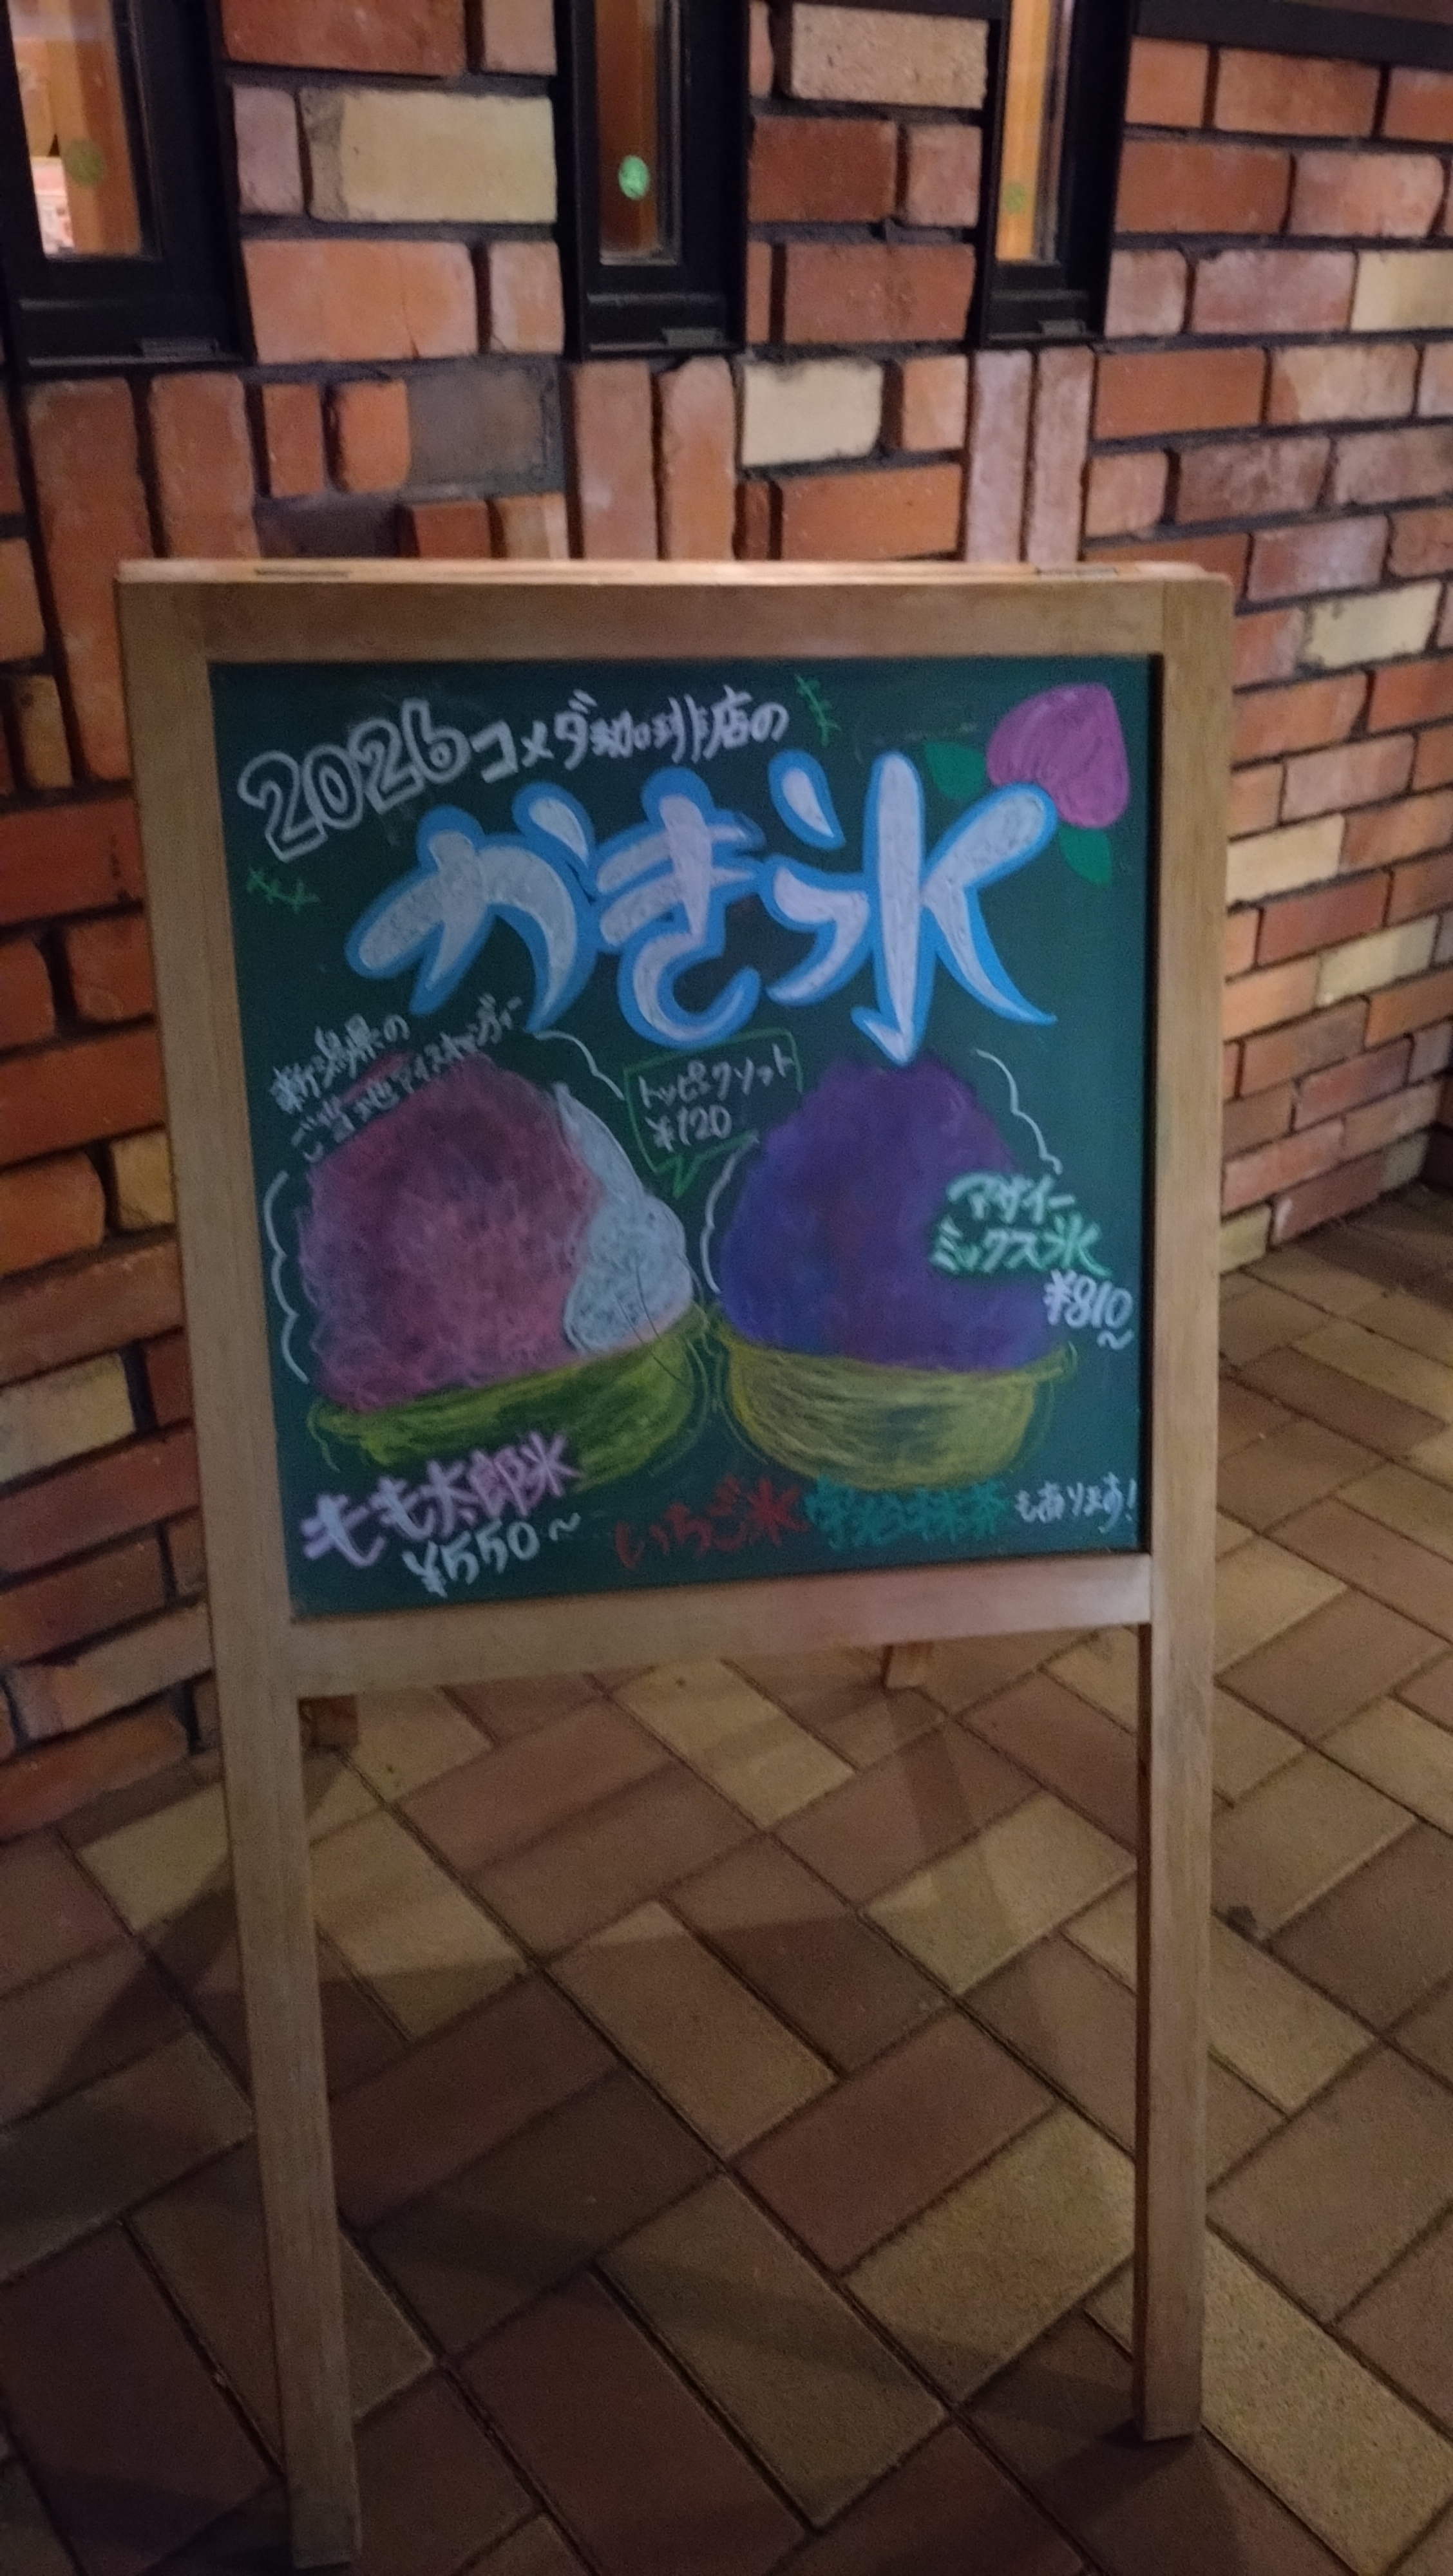 2026 コメダ珈琲店の
かき氷
新潟県の
ご当地アイスキャンディー
トッピングソフト
¥120
アサイー
ミックス氷
¥810~
もも太郎氷
¥550~
いちご氷 宇治抹茶 もあります!